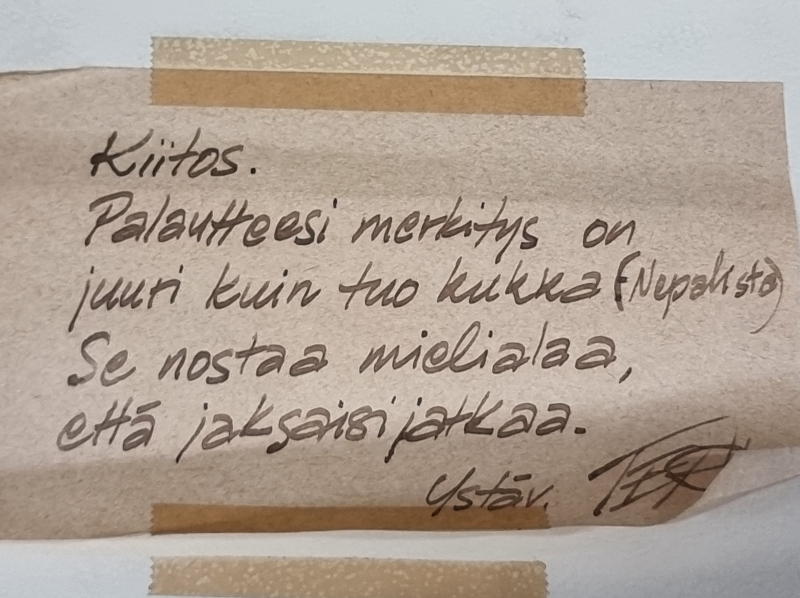 Kiitos.
Palautteesi merkitys on
juuri kuin tuo kukka. (Nepalista)
Se nostaa mielialaa,
että jaksaisi jatkaa.
Ystäv.